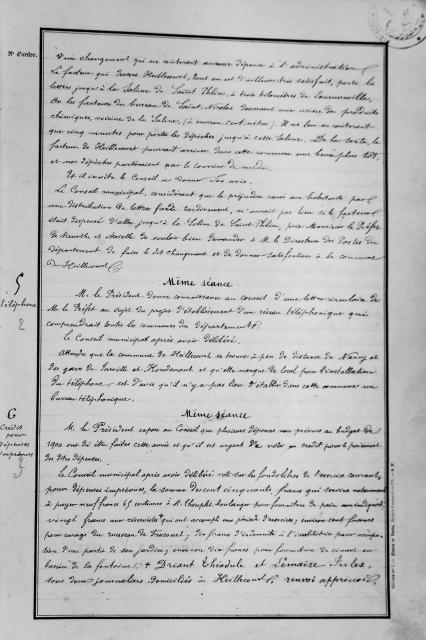 N° d'ordre.
d'un changement qui ne coûterait aucune dépense à l'administration.
Le facteur qui dessert Heillecourt, dont on est d'ailleurs très satisfait, porte les
lettres jusqu'à la Saline de Saint Phlin, à trois kilomètres de Laneuveville.
Or les facteurs du bureau de Saint-Nicolas desservent une usine de produits
chimiques, voisine de la Saline, (à environ cent mètres). Il ne leur en coûterait
que cinq minutes pour porter les dépêches jusqu'à cette Saline. De la sorte, le
facteur de Heillecourt pourrait arriver dans cette commune une heure plus tôt
et nos dépêches partiraient par le courrier de midi.
Et il invite le Conseil à donner son avis.
Le Conseil municipal, considérant que le préjudice causé aux habitants par
une distribution de lettres faite tardivement, n'aurait pas lieu si le facteur
était dispensé d'aller jusqu'à la Saline de Saint-Phlin, prie Monsieur le Préfet
de Meurthe et Moselle de vouloir bien demander à M. le Directeur des Postes du
Département de faire le dit changement et de donner satisfaction à la commune
de Heillecourt.
5
téléphone
2
Même séance
M. le Président donne connaissance au conseil d'une lettre circulaire de
M. le Préfet au sujet du projet d'établissement d'un réseau téléphonique qui
comprendrait toutes les communes du département.
Le Conseil municipal après avoir délibéré.
Attendu que la commune de Heillecourt se trouve à peu de distance de Nancy et
des gares de Jarville et Houdemont et qu'elle manque de local pour l'installation
du téléphone, est d'avis qu'il n'y a pas lieu d'établir dans cette commune un
bureau téléphonique.
6
Crédit
pour
dépenses
imprévues
3
Même séance
M. le Président expose au Conseil que plusieurs dépenses non prévues au budget de
1900 ont dû être faites cette année et qu'il est urgent de voter un crédit pour le paiement
des dites dépenses.
Le Conseil municipal après avoir délibéré vote sur les fonds libres de l'exercice courant,
pour dépenses imprévues, la somme de cent cinquante francs qui servira notamment
à payer neuf francs 65 centimes à M. boulanger pour fourniture de pain aux indigents,
vingt francs aux réservistes qui ont accompli une période d'exercices; environ cent francs
pour curage du ruisseau de; dix francs d'indemnité à l'institutrice pour occupation
d'une partie de son jardin; environ dix francs pour fourniture de ciment au
bassin de la fontaine. + Driant Théodule et Lemaire Jules,
tous deux journaliers domiciliés à Heillecourt. renvoi approuvé.